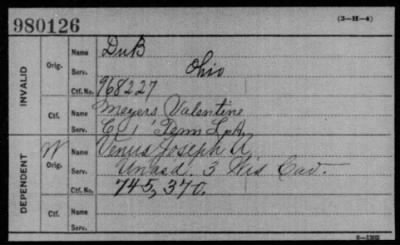 980126
(3-H-4)
INVALID
Orig.
Name DuB
Serv. Ohio
Ctf. No. 968227
Ctf.
Name Meyers Valentine
Serv. E, 1" Tenn L.A.
DEPENDENT
W Orig.
Name Venus Joseph A.
Serv. Unasd. 3 Wis Cav.
Ctf. No. 745,370.
Ctf.
Name
Serv.